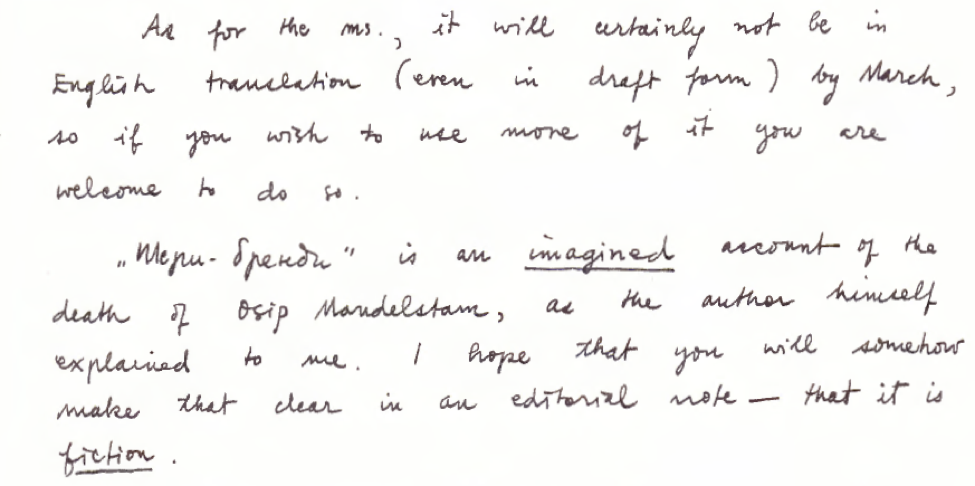 As for the ms., it will certainly not be in
English translation (even in draft form) by March,
so if you wish to use more of it you are
welcome to do so.
„Шери-бренди" is an imagined account of the
death of Osip Mandelstam, as the author himself
explained to me. I hope that you will somehow
make that clear in an editorial note — that it is
fiction.